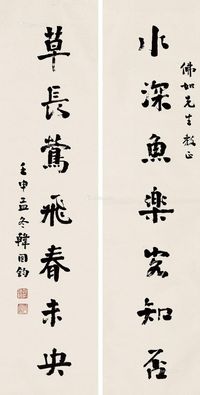 佛如先生教正
水深魚樂客知否
草長鶯飛春未央
壬申孟冬韓國鈞